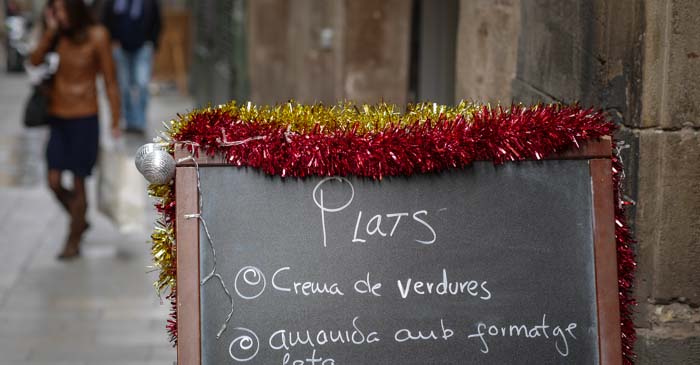 PLATS
Crema de verdures
amanida amb formatge
feta